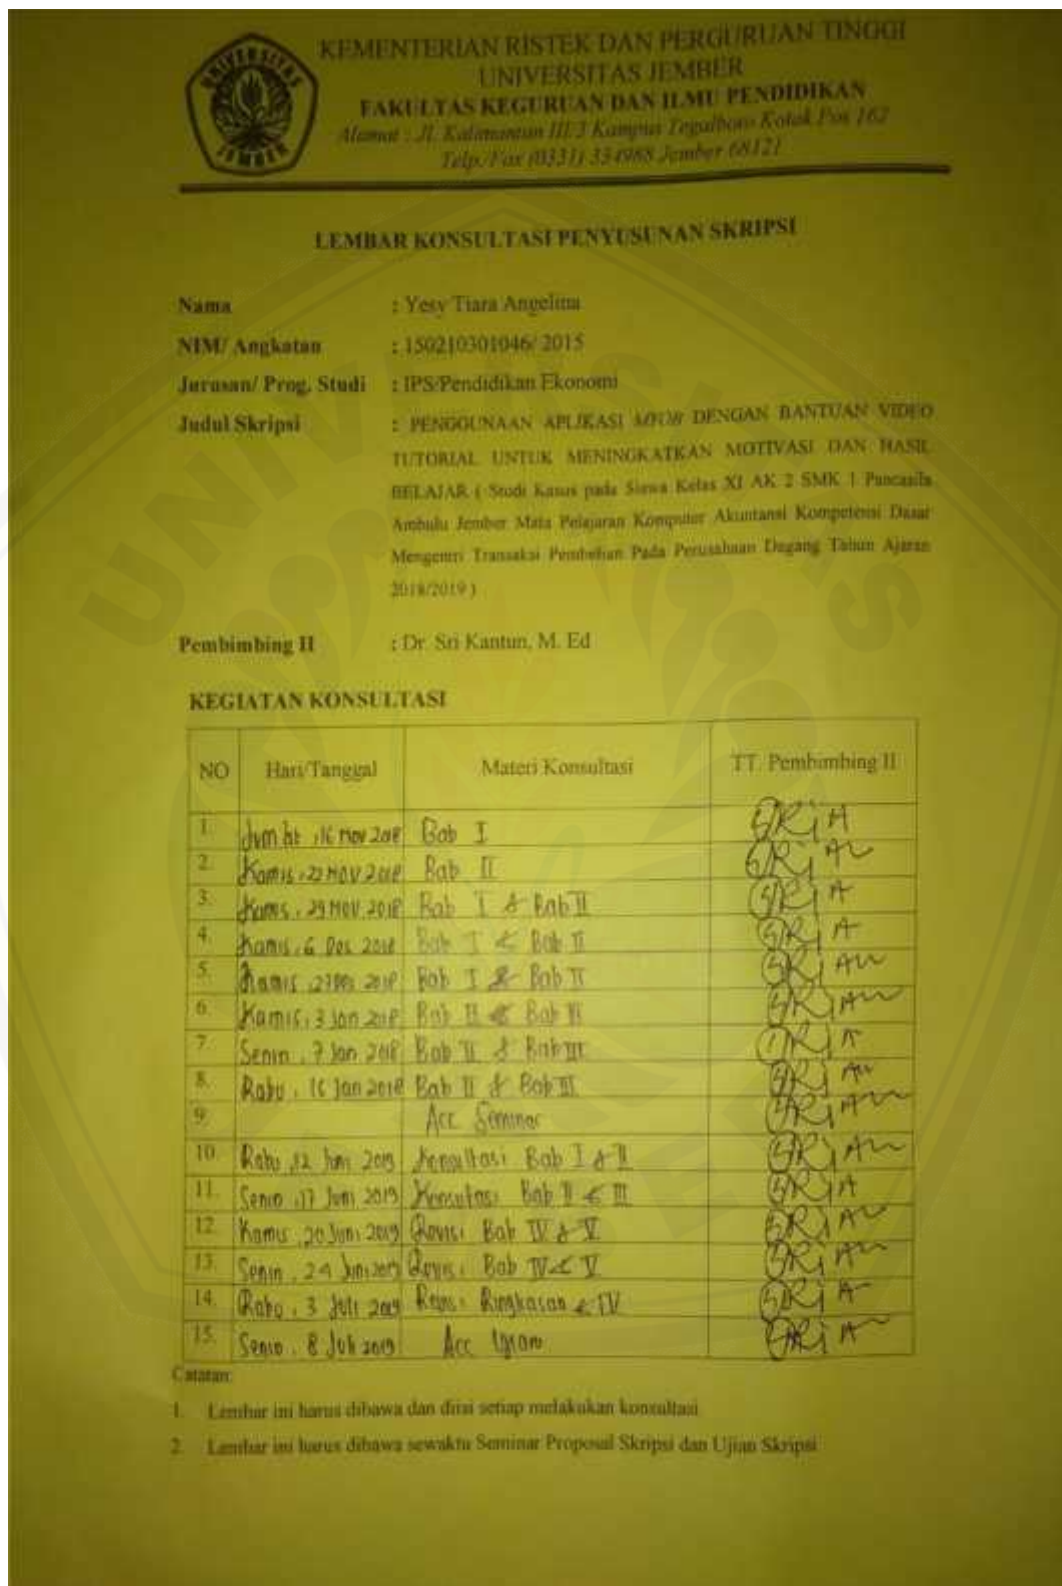 UNIVERSITAS JEMBER
KEMENTERIAN RISTEK DAN PERGURUAN TINGGI
UNIVERSITAS JEMBER
FAKULTAS KEGURUAN DAN ILMU PENDIDIKAN
Alamat : Jl. Kalimantan III/3 Kampus Tegalboto Kotak Pos 162
Telp./Fax (0331) 334988 Jember 68121
LEMBAR KONSULTASI PENYUSUNAN SKRIPSI
Nama : Yesy Tiara Angelina
NIM/ Angkatan : 150210301046/ 2015
Jurusan/ Prog. Studi : IPS/Pendidikan Ekonomi
Judul Skripsi : PENGGUNAAN APLIKASI MYOB DENGAN BANTUAN VIDEO
TUTORIAL UNTUK MENINGKATKAN MOTIVASI DAN HASIL
BELAJAR ( Studi Kasus pada Siswa Kelas XI AK 2 SMK 1 Pancasila
Ambulu Jember Mata Pelajaran Komputer Akuntansi Kompetensi Dasar
Mengentri Transaksi Pembelian Pada Perusahaan Dagang Tahun Ajaran
2018/2019 )
Pembimbing II : Dr. Sri Kantun, M. Ed
KEGIATAN KONSULTASI
NO Hari/Tanggal Materi Konsultasi TT. Pembimbing II
1. Jum'at, 16 Nov 2018 Bab I
2. Kamis, 22 Nov 2018 Bab II
3. Kamis, 29 Nov 2018 Bab I & Bab II
4. Kamis, 6 Des 2018 Bab I & Bab II
5. Kamis, 27 Des 2018 Bab I & Bab II
6. Kamis, 3 Jan 2018 Bab II & Bab III
7. Senin, 7 Jan 2018 Bab II & Bab III
8. Rabu, 16 Jan 2018 Bab II & Bab III
9. Acc Seminar
10. Rabu, 12 Juni 2019 Konsultasi Bab I & II
11. Senin, 17 Juni 2019 Konsultasi Bab II & III
12. Kamis, 20 Juni 2019 Revisi Bab IV & V
13. Senin, 24 Juni 2019 Revisi Bab IV & V
14. Rabu, 3 Juli 2019 Revisi Ringkasan & IV
15. Senin, 8 Juli 2019 Acc Ujian
Catatan:
1. Lembar ini harus dibawa dan diisi setiap melakukan konsultasi
2. Lembar ini harus dibawa sewaktu Seminar Proposal Skripsi dan Ujian Skripsi